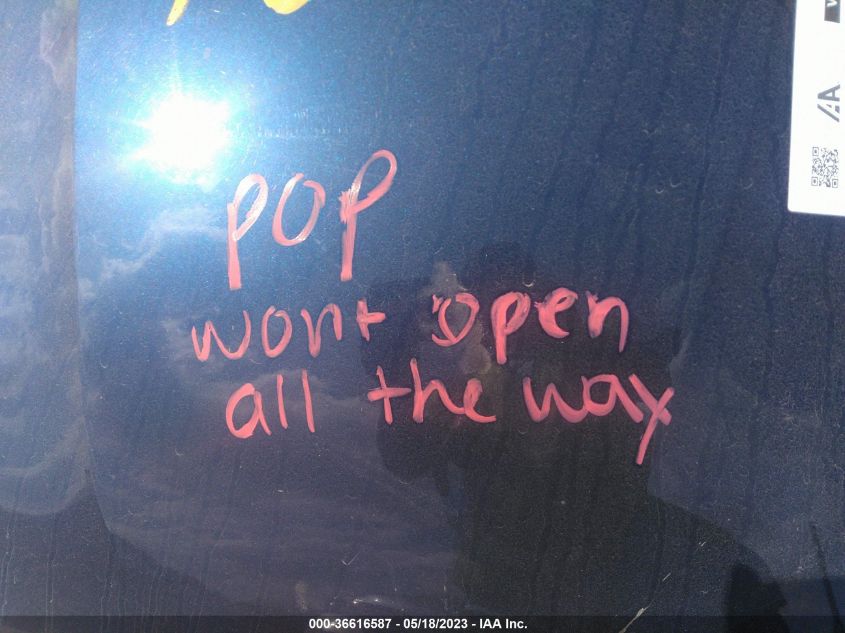 POP
wont open
all the way
IAA
000-36616587 - 05/18/2023 - IAA Inc.